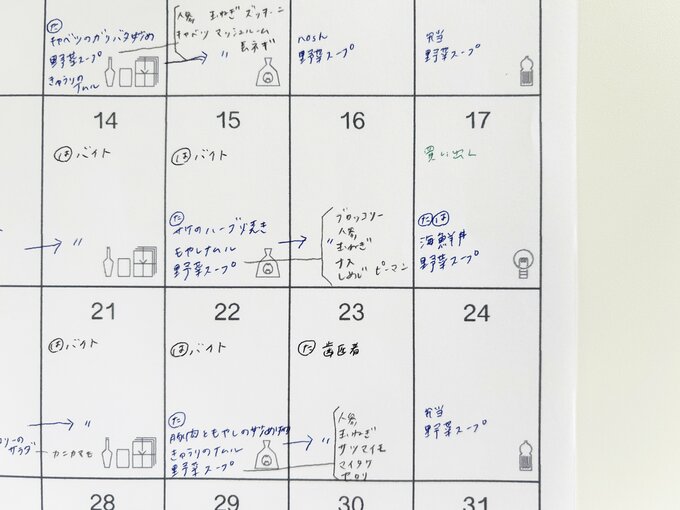 た
キャベツのガリバタ炒め
野菜スープ
きゅうりの
ナムル
人参 玉ねぎ ズッキーニ
キャベツ マッシュルーム
長ネギ
〃
nosh
野菜スープ
弁当
野菜スープ
14
はバイト
→ 〃
15
はバイト
た
サケのハーブソルト焼き
もやしナムル
野菜スープ
16
→ 〃
ブロッコリー
人参
玉ねぎ
ナス
しめじ ピーマン
17
買い出し
たは
海鮮丼
野菜スープ
21
はバイト
→ 〃
サラダ
カニカマも
22
はバイト
た
豚肉ともやしの炒め物
きゅうりのナムル
野菜スープ
23
た 歯医者
→ 〃
人参
玉ねぎ
サツマイモ
マイタケ
セロリ
24
弁当
野菜スープ
28
29
30
31